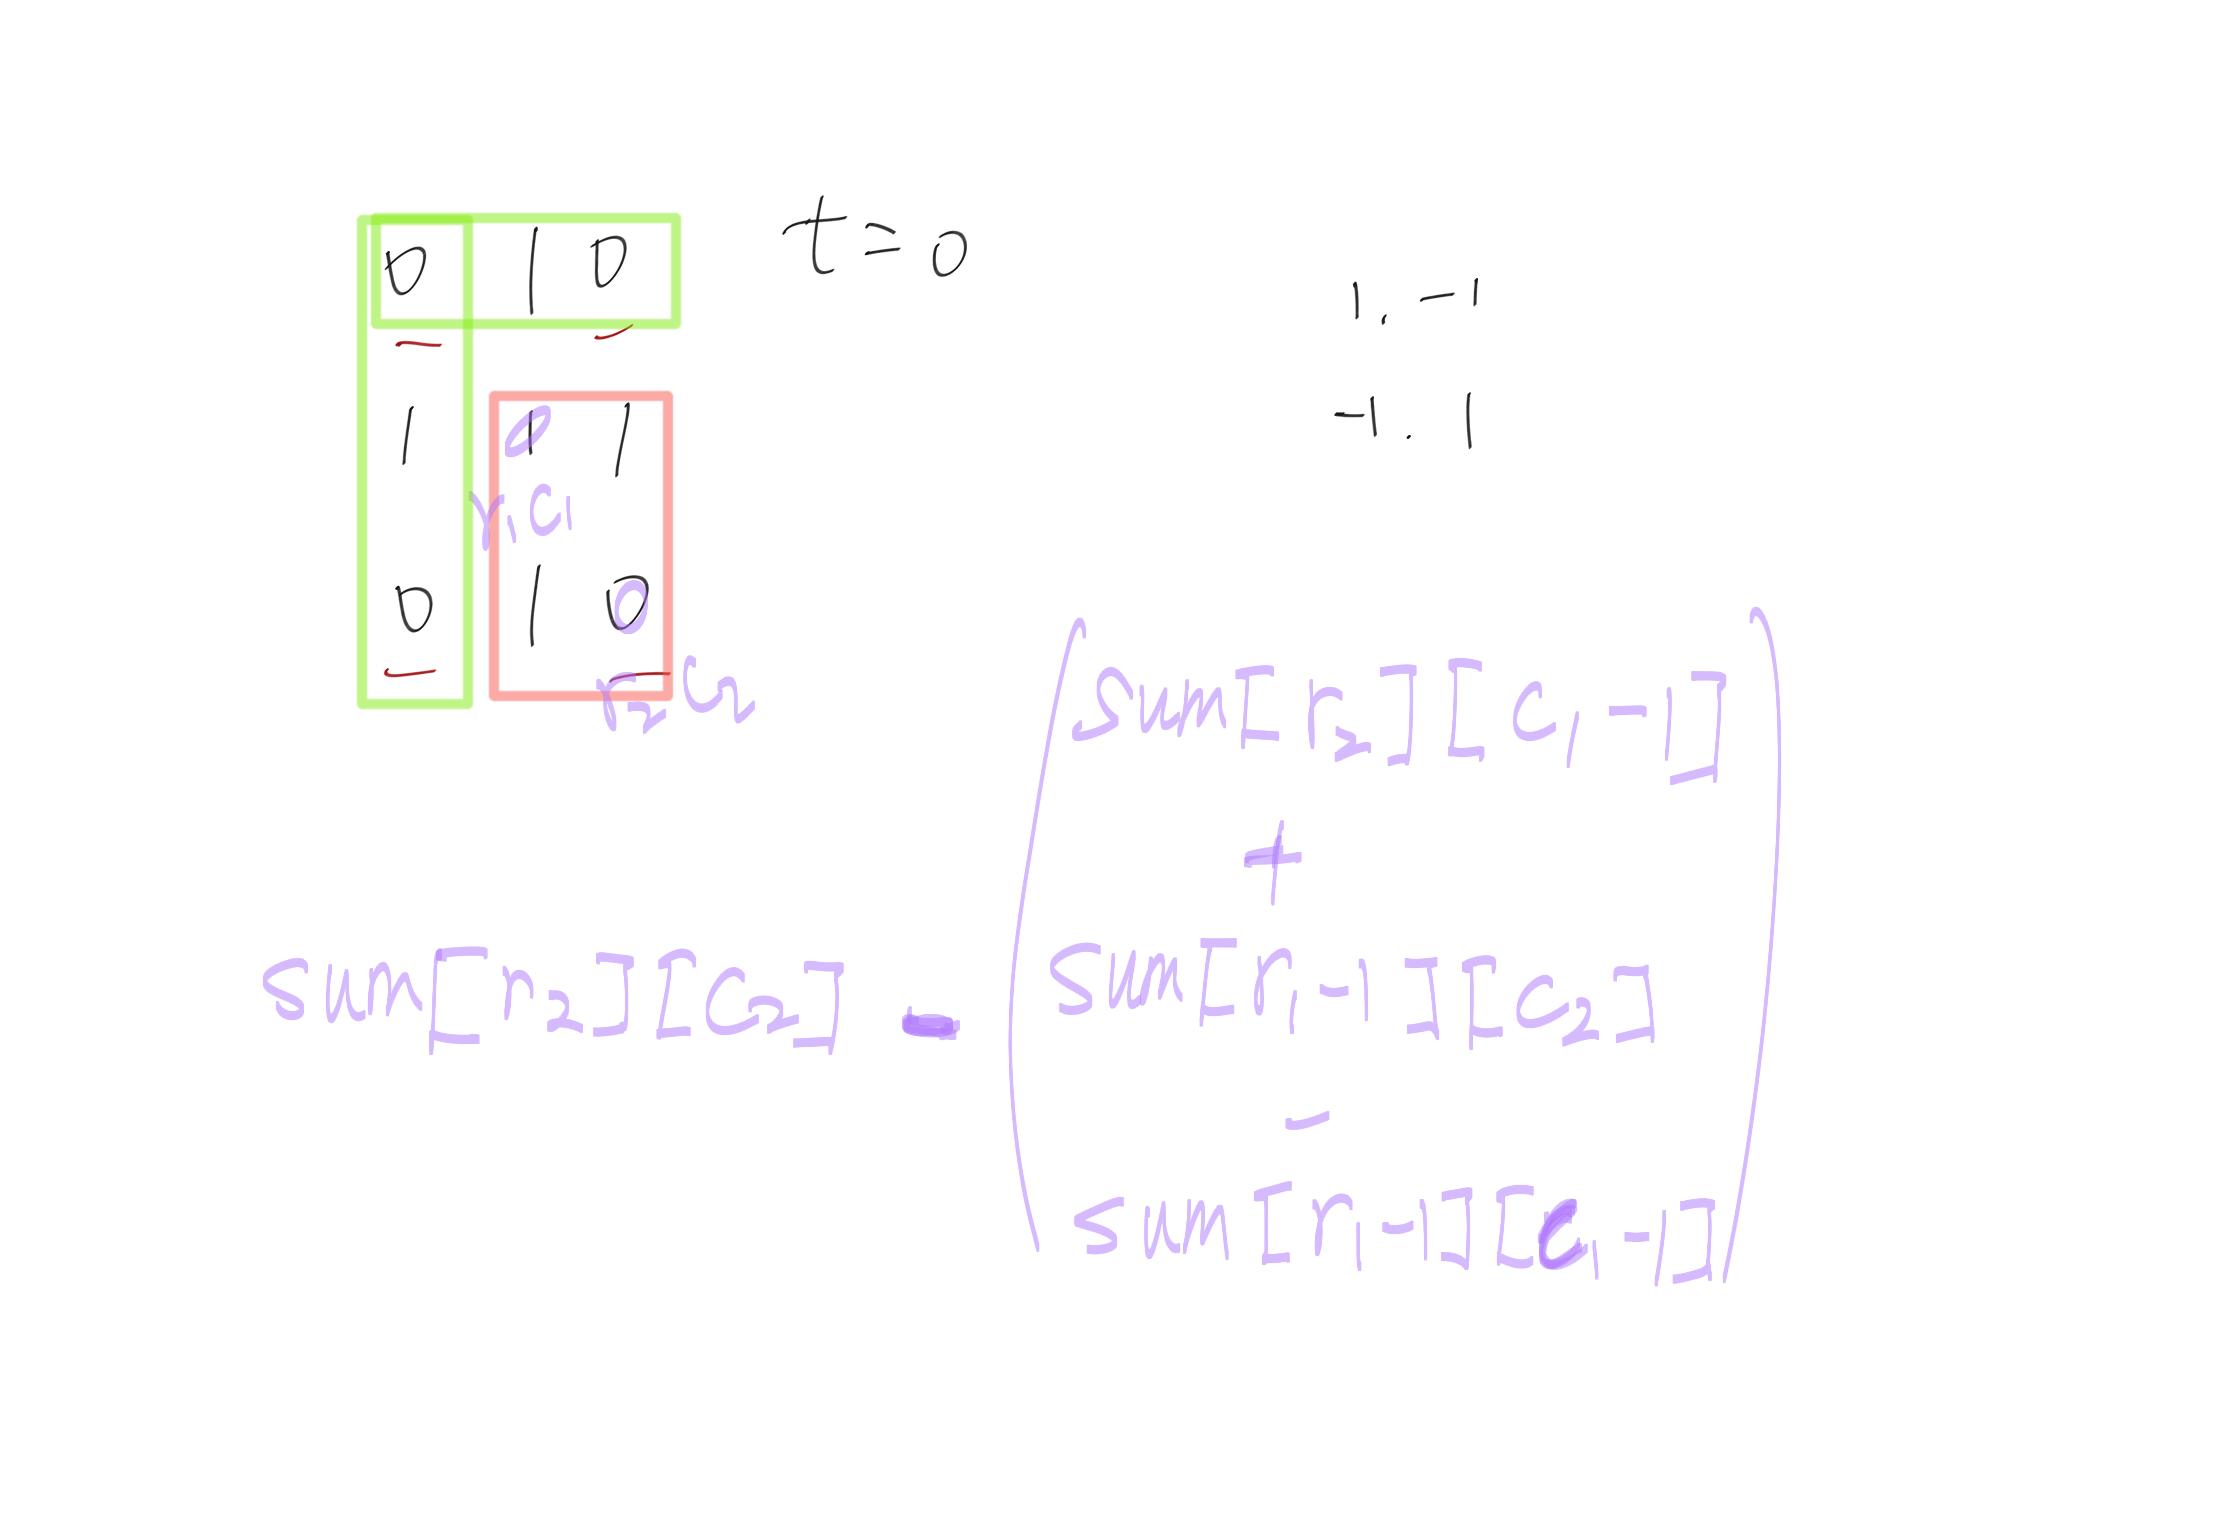 0 1 0
t=0
1 1 1
r1c1
0 1 0
r2c2
1, -1
-1, 1
sum[r2][c1-1]
+
sum[r2][c2] - sum[r1-1][c2]
-
sum[r1-1][c1-1]